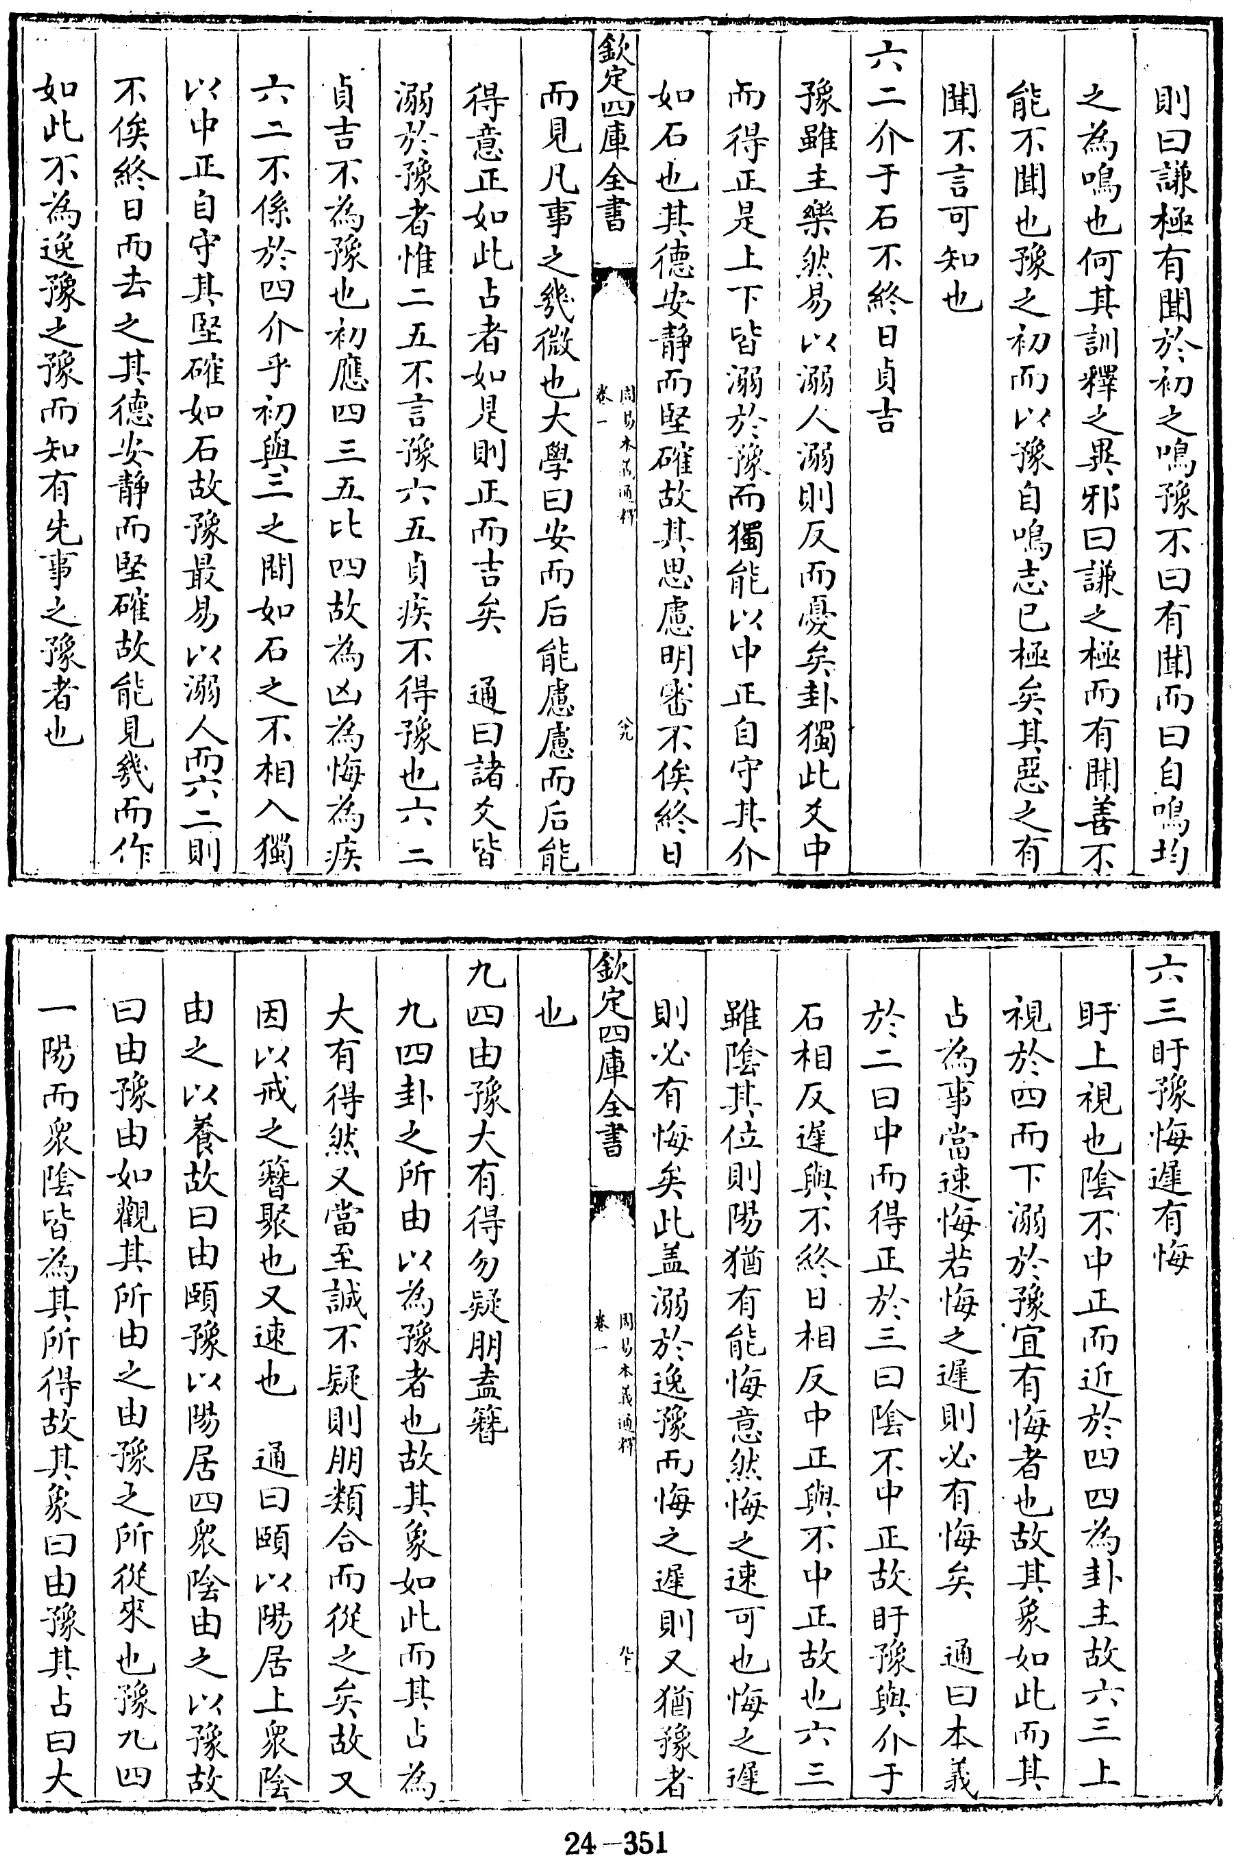 則曰謙極有聞於初之鳴豫不曰有聞而曰自鳴均
之為鳴也何其訓釋之異邪曰謙之極而有聞善不
能不聞也豫之初而以豫自鳴志已極矣其惡之有
聞不言可知也
六二介于石不終日貞吉
豫雖主樂然易以溺人溺則反而憂矣卦獨此爻中
而得正是上下皆溺於豫而獨能以中正自守其介
如石也其德安静而堅確故其思慮明審不俟終日
欽定四庫全書
周易本義通釋
卷一
而見凡事之幾微也大學曰安而后能慮慮而后能
得意正如此占者如是則正而吉矣　通曰諸爻皆
溺於豫者惟二五不言豫六五貞疾不得豫也六二
貞吉不為豫也初應四三五比四故為凶為悔為疾
六二不係於四介乎初與三之間如石之不相入獨
以中正自守其堅確如石故豫最易以溺人而六二則
不俟終日而去之其德安静而堅確故能見幾而作
如此不為逸豫之豫而知有先事之豫者也
六三盱豫悔遲有悔
盱上視也陰不中正而近於四四為卦主故六三上
視於四而下溺於豫宜有悔者也故其象如此而其
占為事當速悔若悔之遲則必有悔矣　通曰本義
於二曰中而得正於三曰陰不中正故盱豫與介于
石相反遲與不終日相反中正與不中正故也六三
雖陰其位則陽猶有能悔意然悔之速可也悔之遲
則必有悔矣此盖溺於逸豫而悔之遲則又猶豫者
欽定四庫全書
周易本義通釋
卷一
也
九四由豫大有得勿疑朋盍簪
九四卦之所由以為豫者也故其象如此而其占為
大有得然又當至誠不疑則朋類合而從之矣故又
因以戒之簪聚也又速也　通曰頤以陽居上衆陰
由之以養故曰由頤豫以陽居四衆陰由之以豫故
曰由豫由如觀其所由之由豫之所從來也豫九四
一陽而衆陰皆為其所得故其象曰由豫其占曰大
24-351